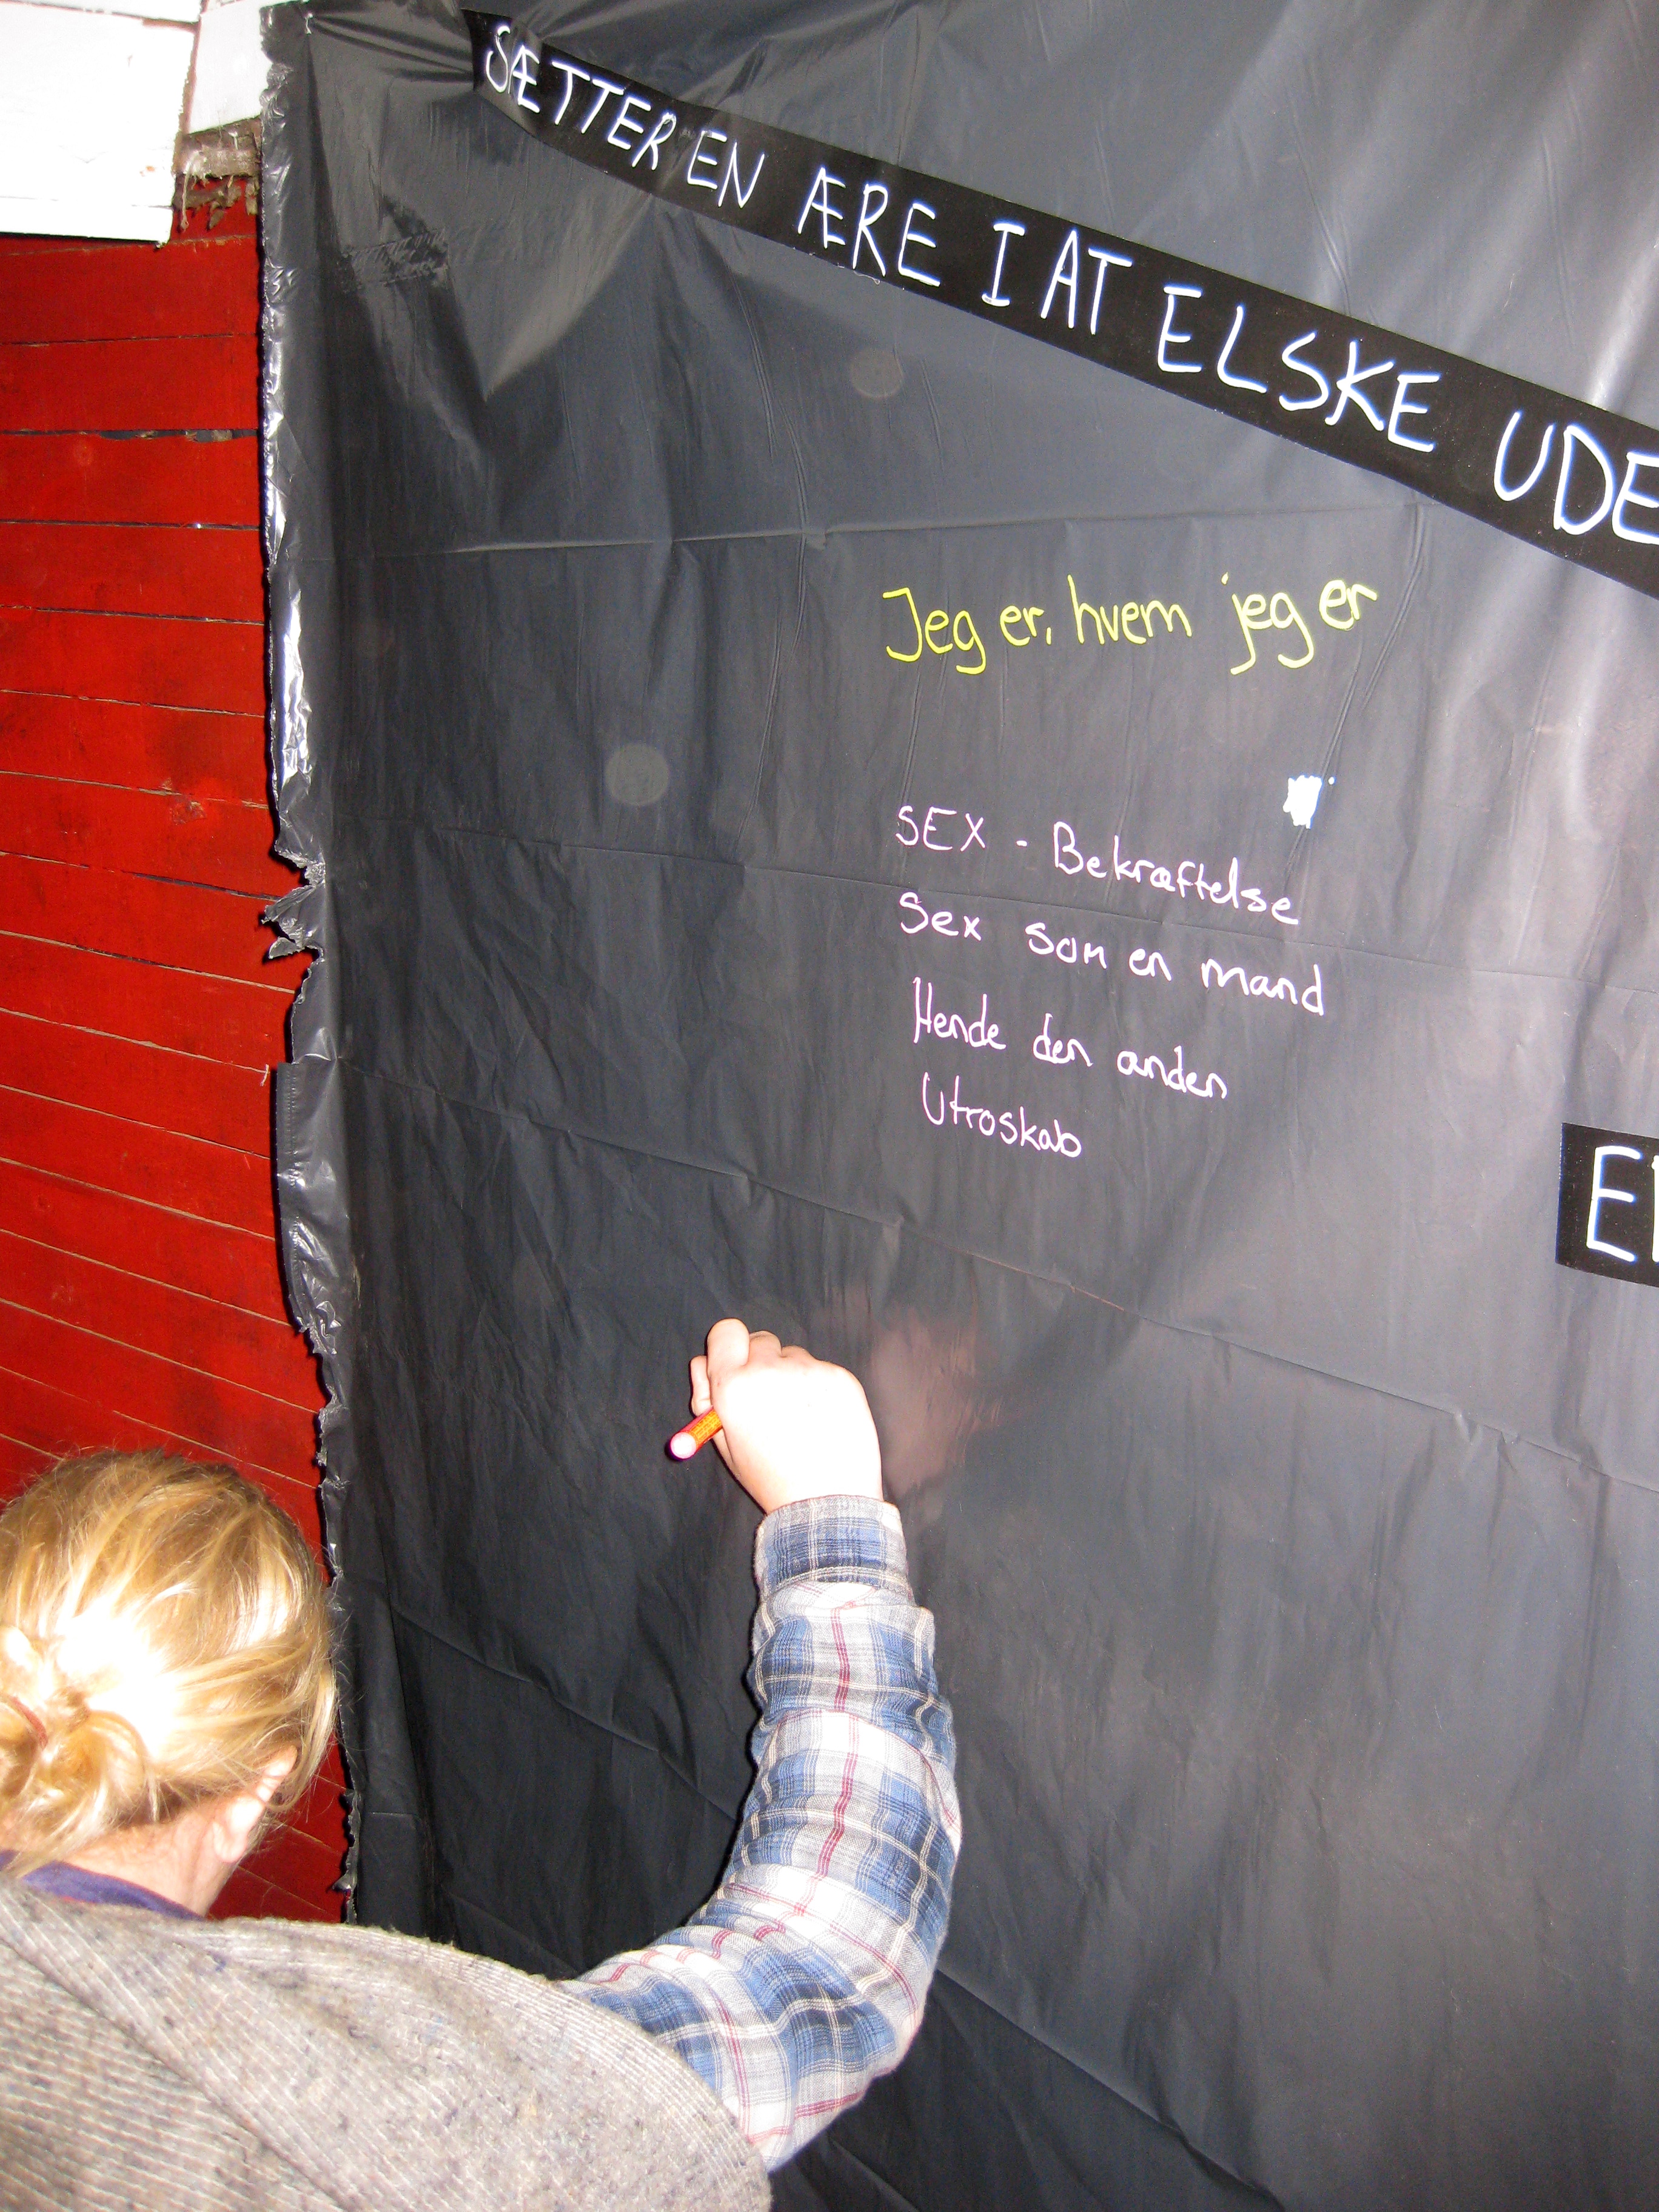 SÆTTER EN ÆRE I AT ELSKE UDE
Jeg er, hvem jeg er
SEX - Bekræftelse
Sex som en mand
Hende den anden
Utroskab